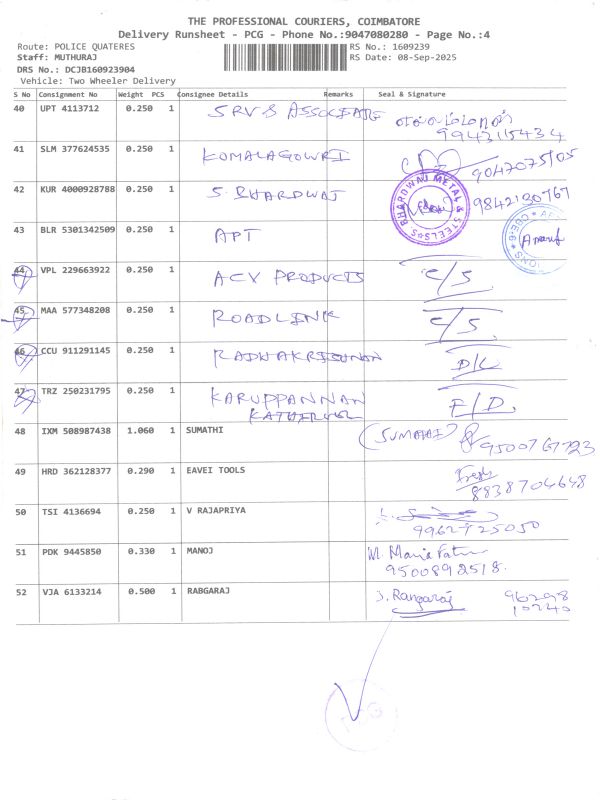 THE PROFESSIONAL COURIERS, COIMBATORE
Delivery Runsheet - PCG - Phone No.:9047080280 - Page No.:4
Route: POLICE QUATERES RS No.: 1609239
Staff: MUTHURAJ RS Date: 08-Sep-2025
DRS No.: DCJB160923904
Vehicle: Two Wheeler Delivery
S No Consignment No Weight PCS Consignee Details Remarks Seal & Signature
40 UPT 4113712 0.250 1 SRV & ASSOCIATE
9943115434
41 SLM 377624535 0.250 1 KOMALAGOWRI 9047075105
42 KUR 4000928788 0.250 1 S. BHARDWAJ 9842130767
BHARDWAJ METAL & STEELS
43 BLR 5301342509 0.250 1 APT
44 VPL 229663922 0.250 1 ACV PRODUCTS C/S
45 MAA 577348208 0.250 1 ROADLINK C/S
46 CCU 911291145 0.250 1 RADHAKRISHNAN D/L
47 TRZ 250231795 0.250 1 KARUPPANNAN F/D.
KATHIRVEL
48 IXM 508987438 1.060 1 SUMATHI (SUMATHI)
9500767723
49 HRD 362128377 0.290 1 EAVEI TOOLS
8838704648
50 TSI 4136694 0.250 1 V RAJAPRIYA
9962725050
51 PDK 9445850 0.330 1 MANOJ M. Maria
9500892518.
52 VJA 6133214 0.500 1 RABGARAJ J. Rangaraj 96298
10240
PCG